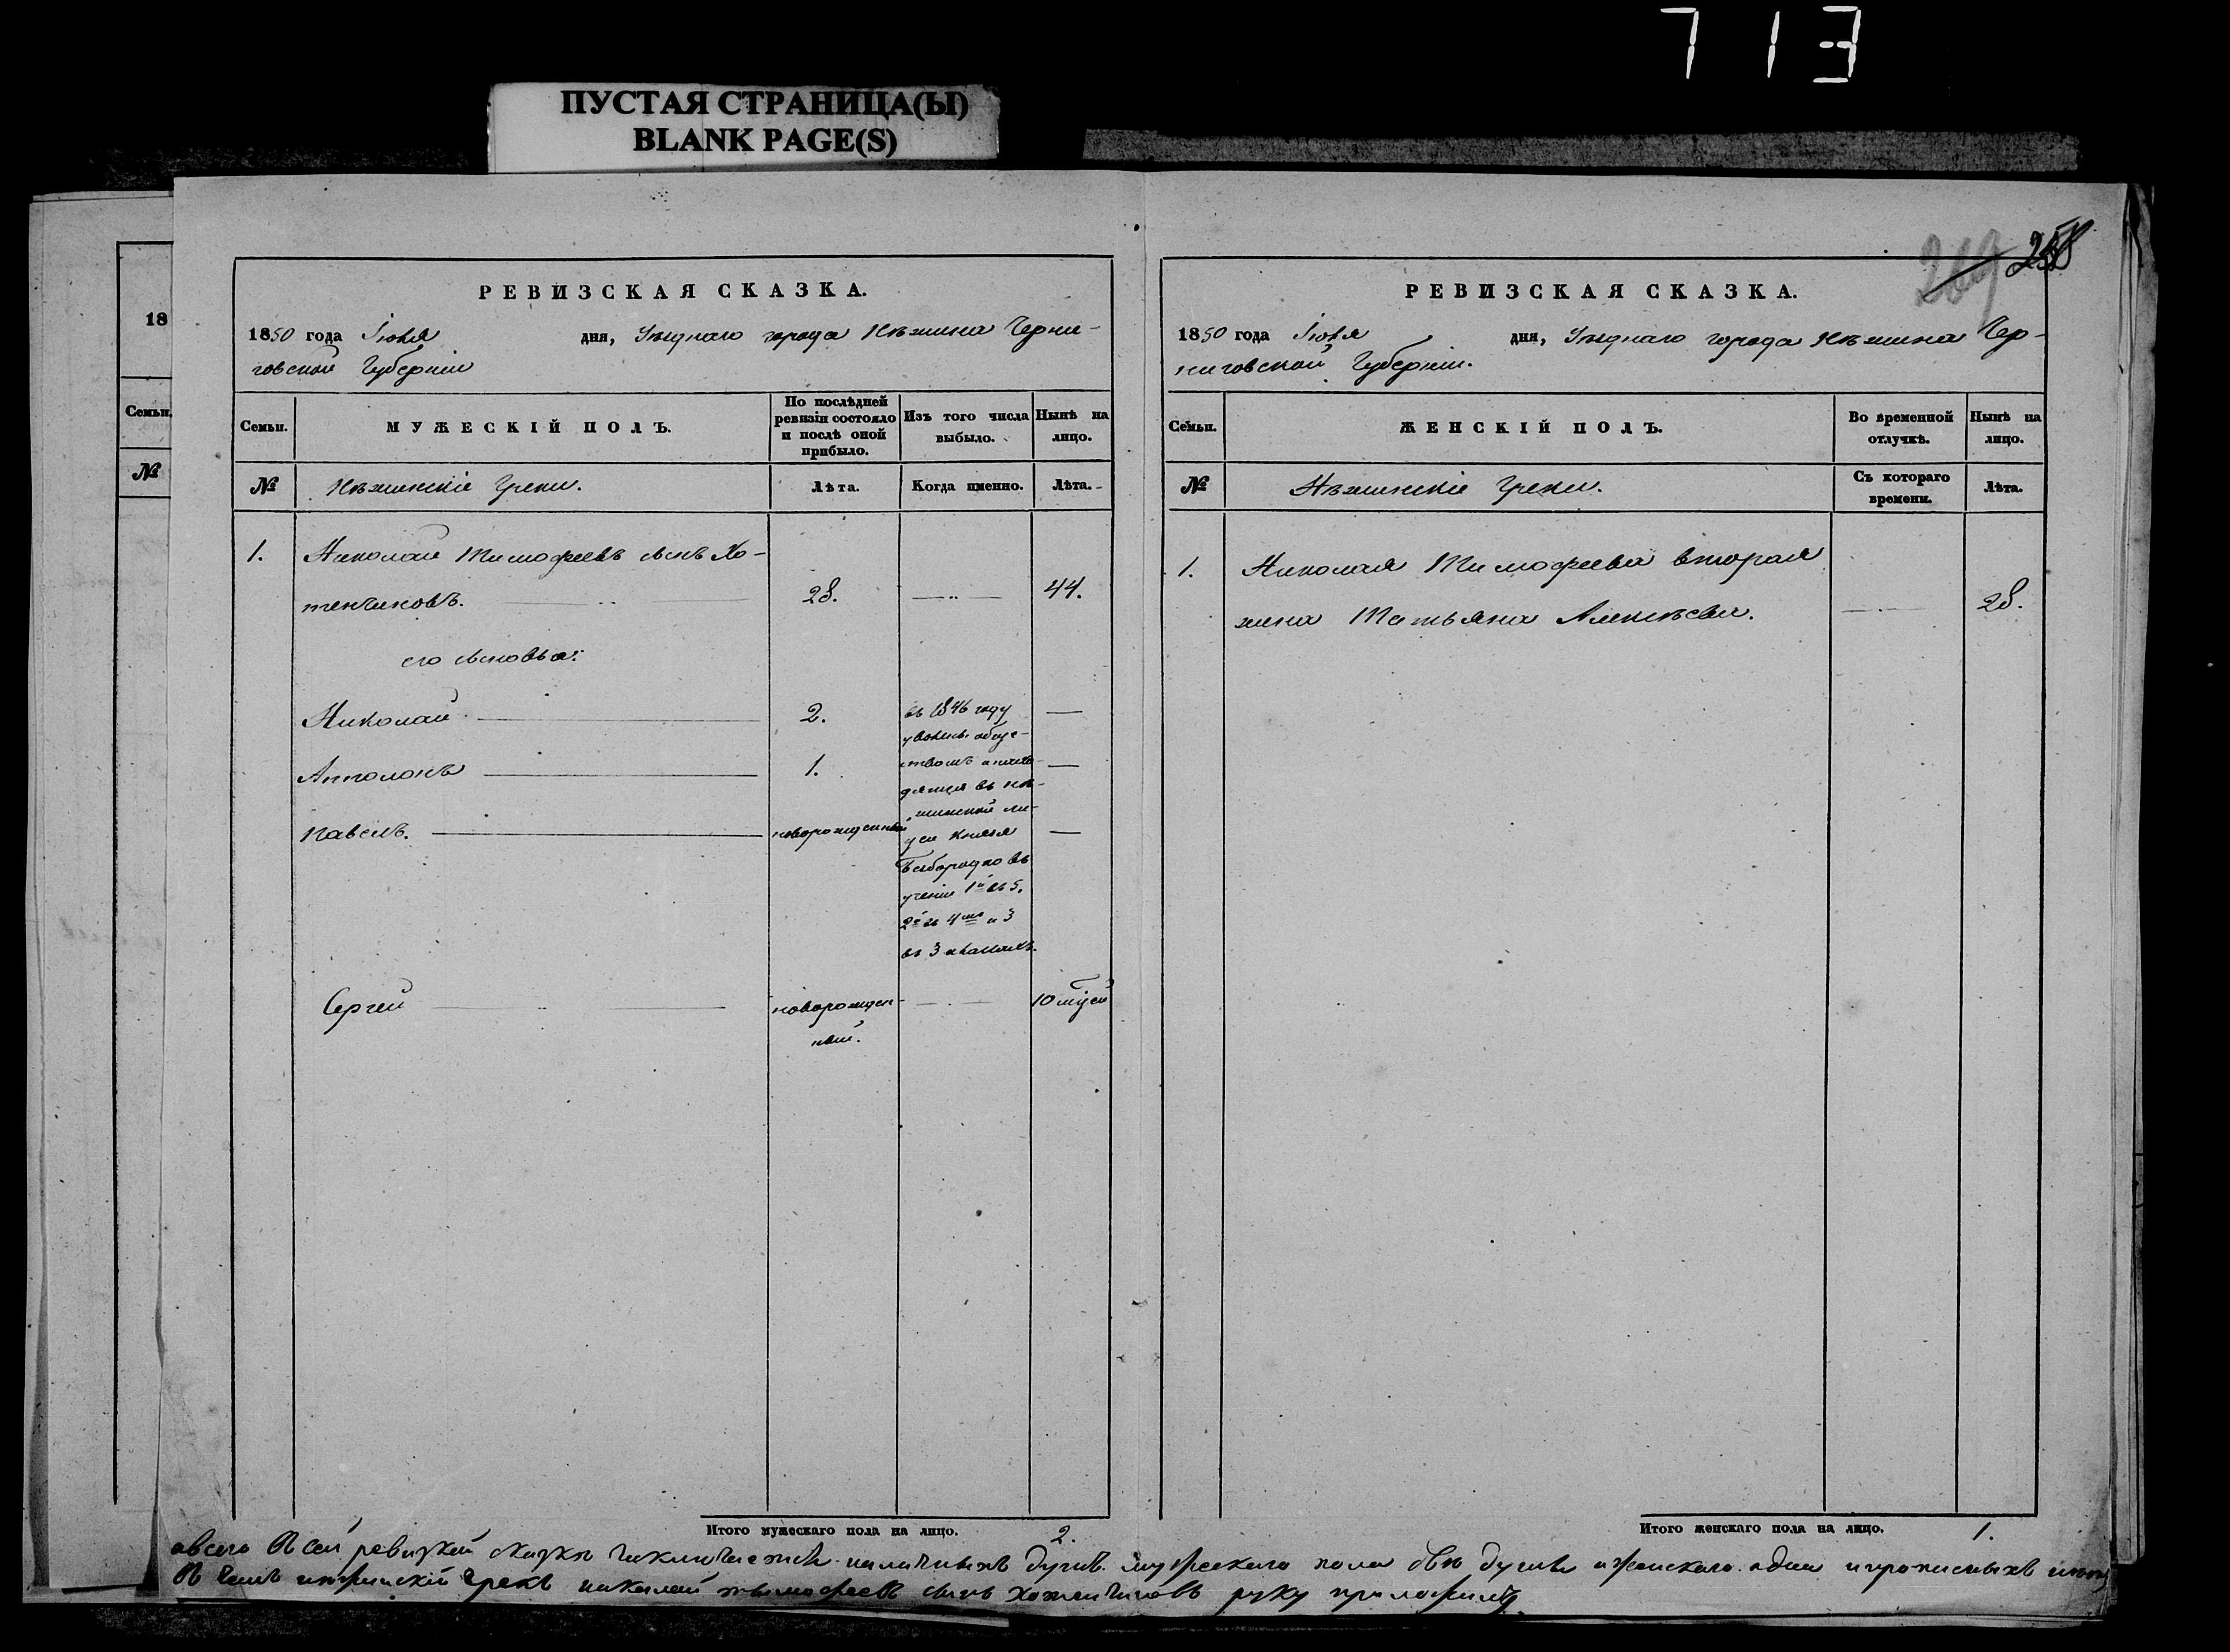 713
ПУСТАЯ СТРАНИЦА(Ы)
BLANK PAGE(S)
18
Семьи.
№
РЕВИЗСКАЯ СКАЗКА.
1850 года Іюля дня, Уѣзднаго города Нѣжина Черни-
говской Губерніи
Семьи.
МУЖЕСКІЙ ПОЛЪ.
По послѣдней ревизіи состояло и послѣ оной прибыло.
Изъ того числа выбыло.
Нынѣ на лицо.
№
Нѣжинскіе Греки.
Лѣта.
Когда именно.
Лѣта.
1. Николай Тимофеевъ сынъ Хо-
тенчиковъ. 28. 44.
его сыновья:
Николай 2.
Апполонъ 1.
Павелъ. новорожденный
въ 1846 году
уволены обще-
ствомъ и нахо-
дятся въ Нѣ-
жинской ли-
цеи Князя
Безбородко въ
ученіи 1й въ 5.
2й въ 4мъ и 3
въ 3 классахъ.
Сергей новорожден-
ный. 10 мѣсей
Итого мужескаго пола на лицо. 2.
269 258
РЕВИЗСКАЯ СКАЗКА.
1850 года Іюля дня, Уѣзднаго города Нѣжина Чер-
ниговской Губерніи.
Семьи.
ЖЕНСКІЙ ПОЛЪ.
Во временной отлучкѣ.
Нынѣ на лицо.
№
Нѣжинскіе Греки.
Съ котораго времени.
Лѣта.
1. Николая Тимофеева вторая
жена Татьяна Алексѣева. 28.
Итого женскаго пола на лицо. 1.
авсего Всей ревизкой сказки наличныхъ душъ мужескаго пола двѣ души аженскаго одна ипрописныхъ
В чемъ нежинскій Грекъ николай тимофеевъ сынъ Хотенчиковъ руку приложилъ